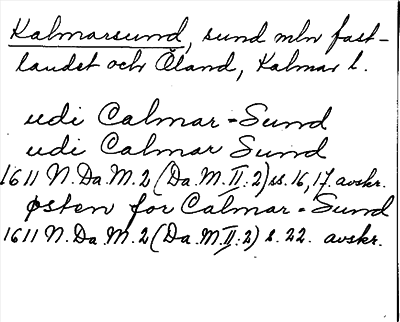 Kalmarsund, sund mln fast-
landet och Öland, Kalmar l.
udi Calmar-Sund
udi Calmar Sund
1611 N.Da.M.2 (Da.M.II:2) ss. 16, 17. avskr.
østen for Calmar-Sund
1611 N.Da.M.2 (Da.M.II:2) s. 22. avskr.